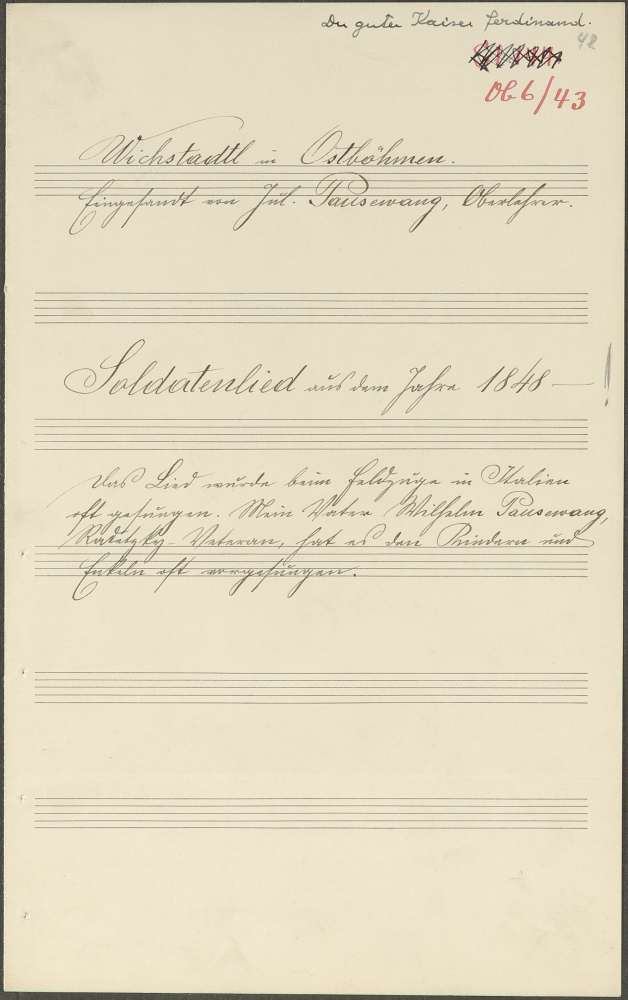 Du guter Kaiser Ferdinand.
42
Ob 6/43
Wichstadtl in Ostböhmen.
Eingesandt von Jul. Pausewang, Oberlehrer.
Soldatenlied aus dem Jahre 1848 —
Das Lied wurde beim Feldzuge in Italien
oft gesungen. Mein Vater Wilhelm Pausewang,
Radetzky-Veteran, hat es den Kindern und
Enkeln oft vorgesungen.